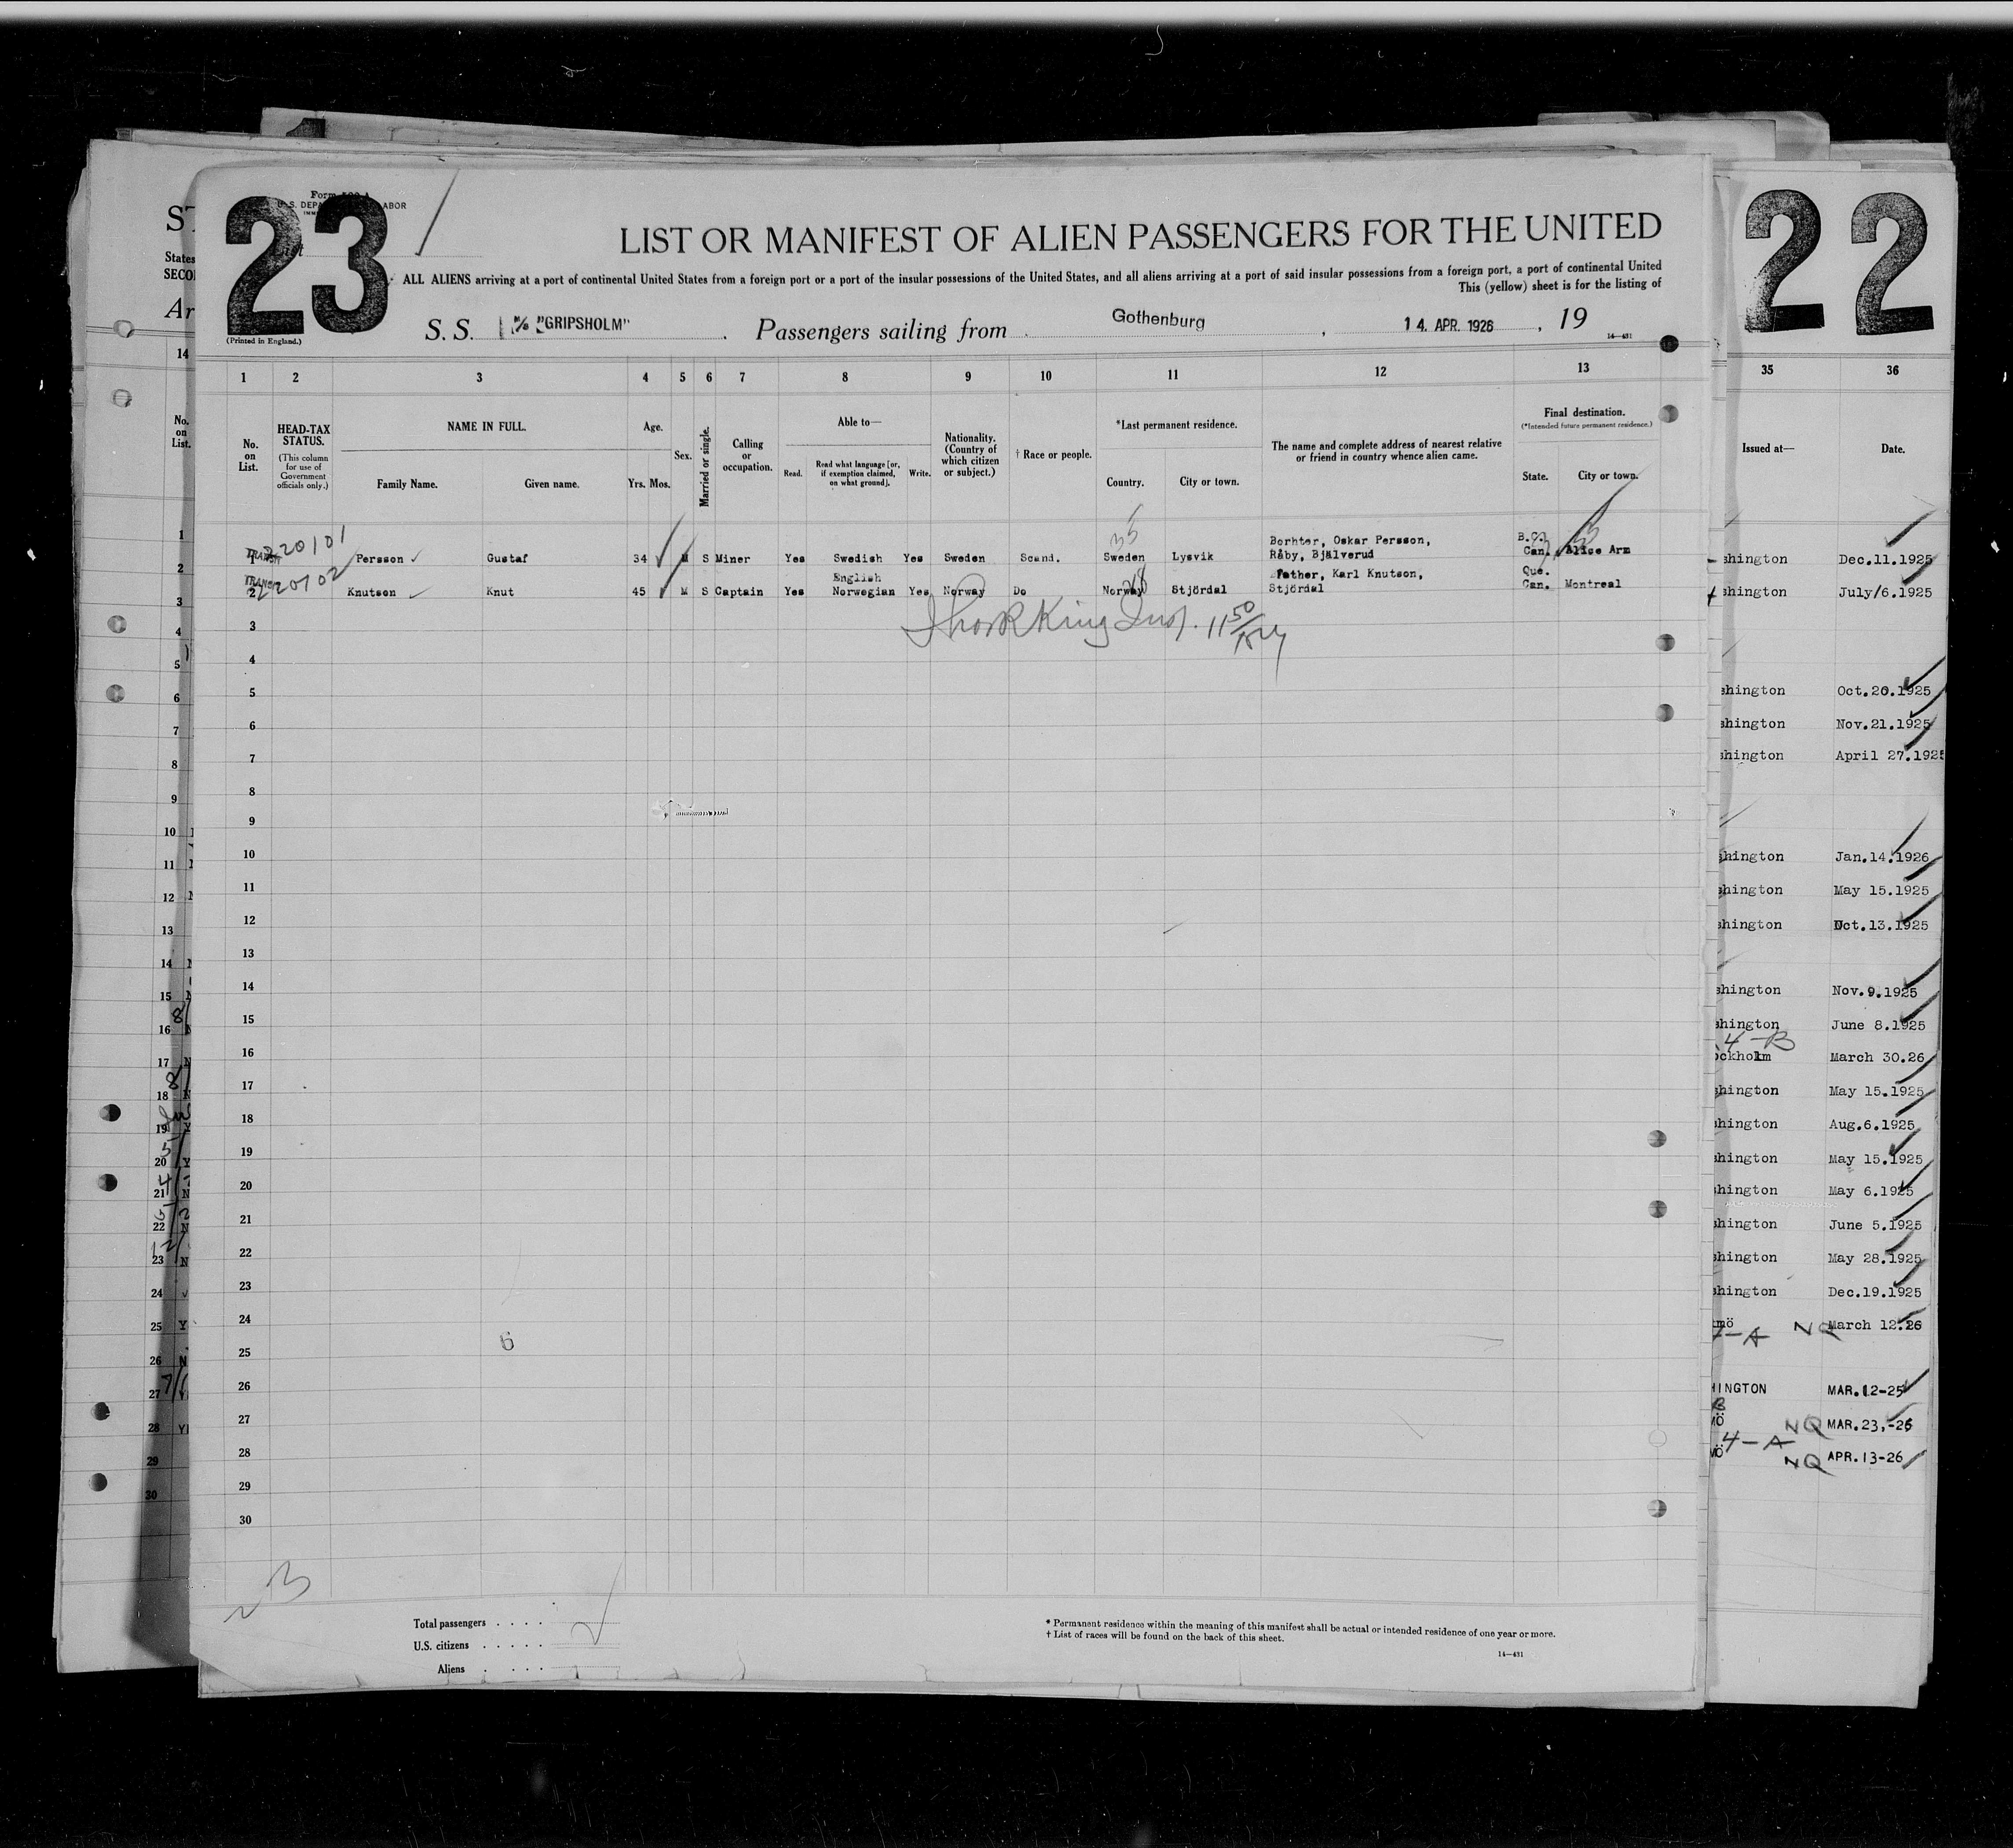 23
Form 500 A
U. S. DEPARTMENT OF LABOR
List
LIST OR MANIFEST OF ALIEN PASSENGERS FOR THE UNITED
ALL ALIENS arriving at a port of continental United States from a foreign port or a port of the insular possessions of the United States, and all aliens arriving at a port of said insular possessions from a foreign port, a port of continental United
This (yellow) sheet is for the listing of
S. S. M/S "GRIPSHOLM" Passengers sailing from Gothenburg, 14. APR. 1926, 19
(Printed in England.)
14—431
1 2 3 4 5 6 7 8 9 10 11 12 13
No. on List.
HEAD-TAX STATUS.
(This column for use of Government officials only.)
NAME IN FULL.
Family Name. Given name.
Age.
Yrs. Mos.
Sex.
Married or single.
Calling or occupation.
Able to—
Read. Read what language [or, if exemption claimed, on what ground]. Write.
Nationality. (Country of which citizen or subject.)
† Race or people.
*Last permanent residence.
Country. City or town.
The name and complete address of nearest relative or friend in country whence alien came.
Final destination.
(*Intended future permanent residence.)
State. City or town.
1 TRANSIT 220101 Persson Gustaf 34 M S Miner Yes Swedish Yes Sweden Scand. 35 Sweden Lysvik Borhter, Oskar Persson, Råby, Bjälverud B.C. Can. Alice Arm
2 TRANSIT 220102 Knutson Knut 45 M S Captain Yes English Norwegian Yes Norway Do Norway Stjördal Father, Karl Knutson, Stjördal Que. Can. Montreal
3
4
5
6
7
8
9
10
11
12
13
14
15
16
17
18
19
20
21
22
23
24
25
26
27
28
29
30
6
Total passengers
U.S. citizens
Aliens
* Permanent residence within the meaning of this manifest shall be actual or intended residence of one year or more.
† List of races will be found on the back of this sheet.
14—431
ST
States
SECO
Ar
14
No. on List.
1
2
3
4
5
6
7
8
9
10
11
12
13
14
15
16
17
18
19
20
21
22
23
24
25
26
27
28
29
30
22
35 36
Issued at— Date.
shington Dec.11.1925
shington July/6.1925
shington Oct.20.1925
shington Nov.21.1925
shington April 27.1925
shington Jan.14.1926
shington May 15.1925
shington Oct.13.1925
shington Nov.9.1925
shington June 8.1925
4-B
ockholm March 30.26
shington May 15.1925
shington Aug.6.1925
shington May 15.1925
shington May 6.1925
shington June 5.1925
shington May 28.1925
shington Dec.19.1925
mö NQ March 12.26
4-A
HINGTON MAR.12-25
MÖ NQ MAR.23,-26
4-A
MÖ NQ APR.13-26